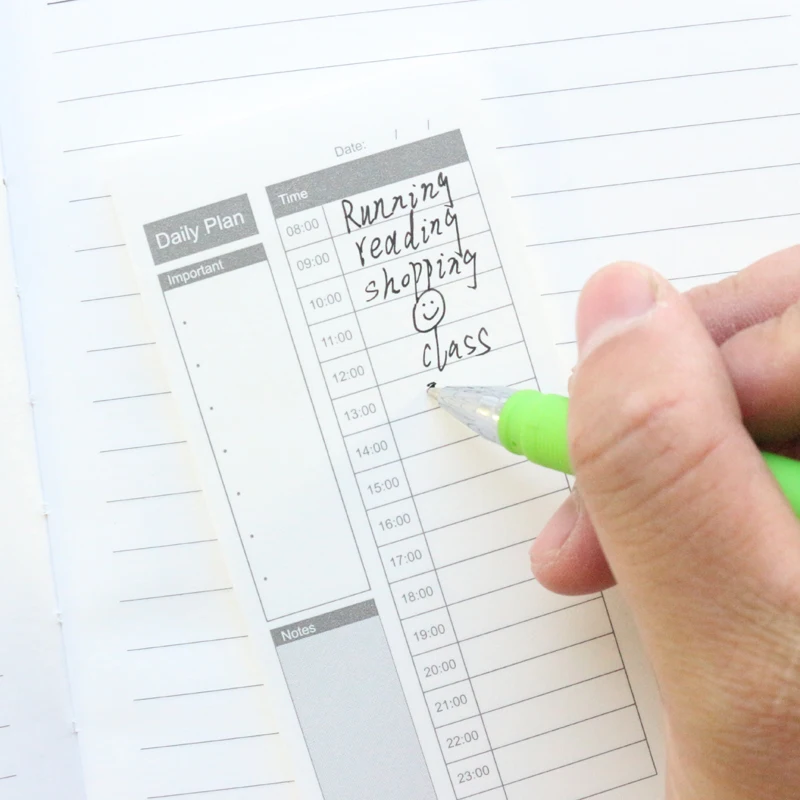 Date: / /
Daily Plan
Important
Time
08:00 Running
09:00 reading
10:00 shopping
11:00
12:00 class
13:00
14:00
15:00
16:00
17:00
18:00
19:00
20:00
21:00
22:00
23:00
Notes